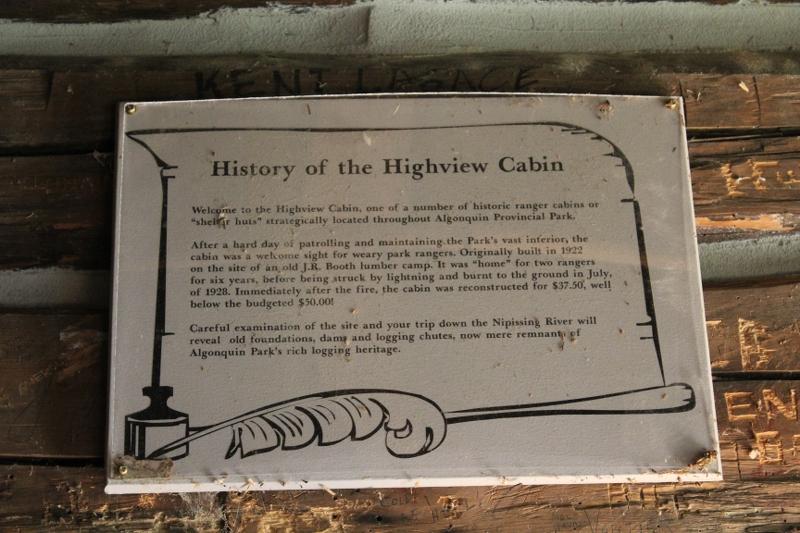 KENT LASAGE
History of the Highview Cabin
Welcome to the Highview Cabin, one of a number of historic ranger cabins or
"shelter huts" strategically located throughout Algonquin Provincial Park.
After a hard day of patrolling and maintaining the Park's vast interior, the
cabin was a welcome sight for weary park rangers. Originally built in 1922
on the site of an old J.R. Booth lumber camp. It was "home" for two rangers
for six years, before being struck by lightning and burnt to the ground in July,
of 1928. Immediately after the fire, the cabin was reconstructed for $37.50, well
below the budgeted $50.00!
Careful examination of the site and your trip down the Nipissing River will
reveal old foundations, dams and logging chutes, now mere remnants of
Algonquin Park's rich logging heritage.